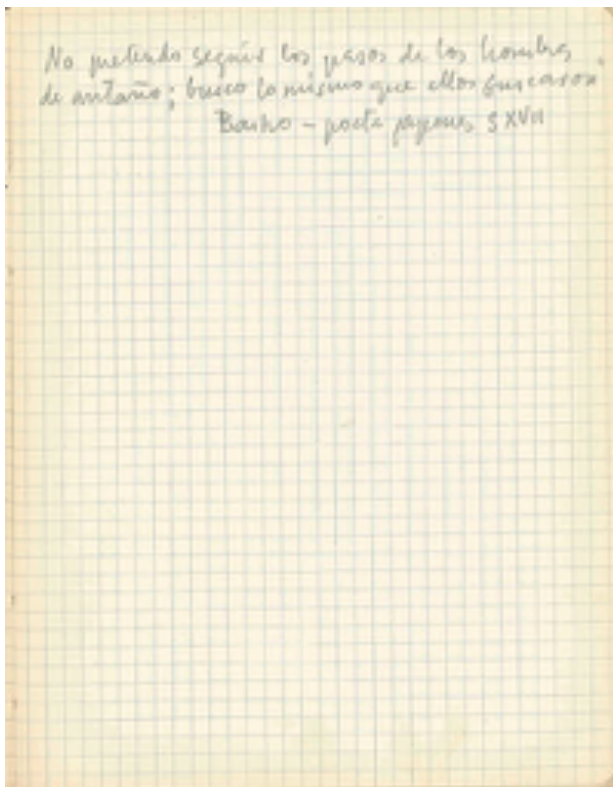 No pretendo seguir los pasos de los hombres
de antaño; busco lo mismo que ellos buscaron.
Basho - poeta japones, S XVII